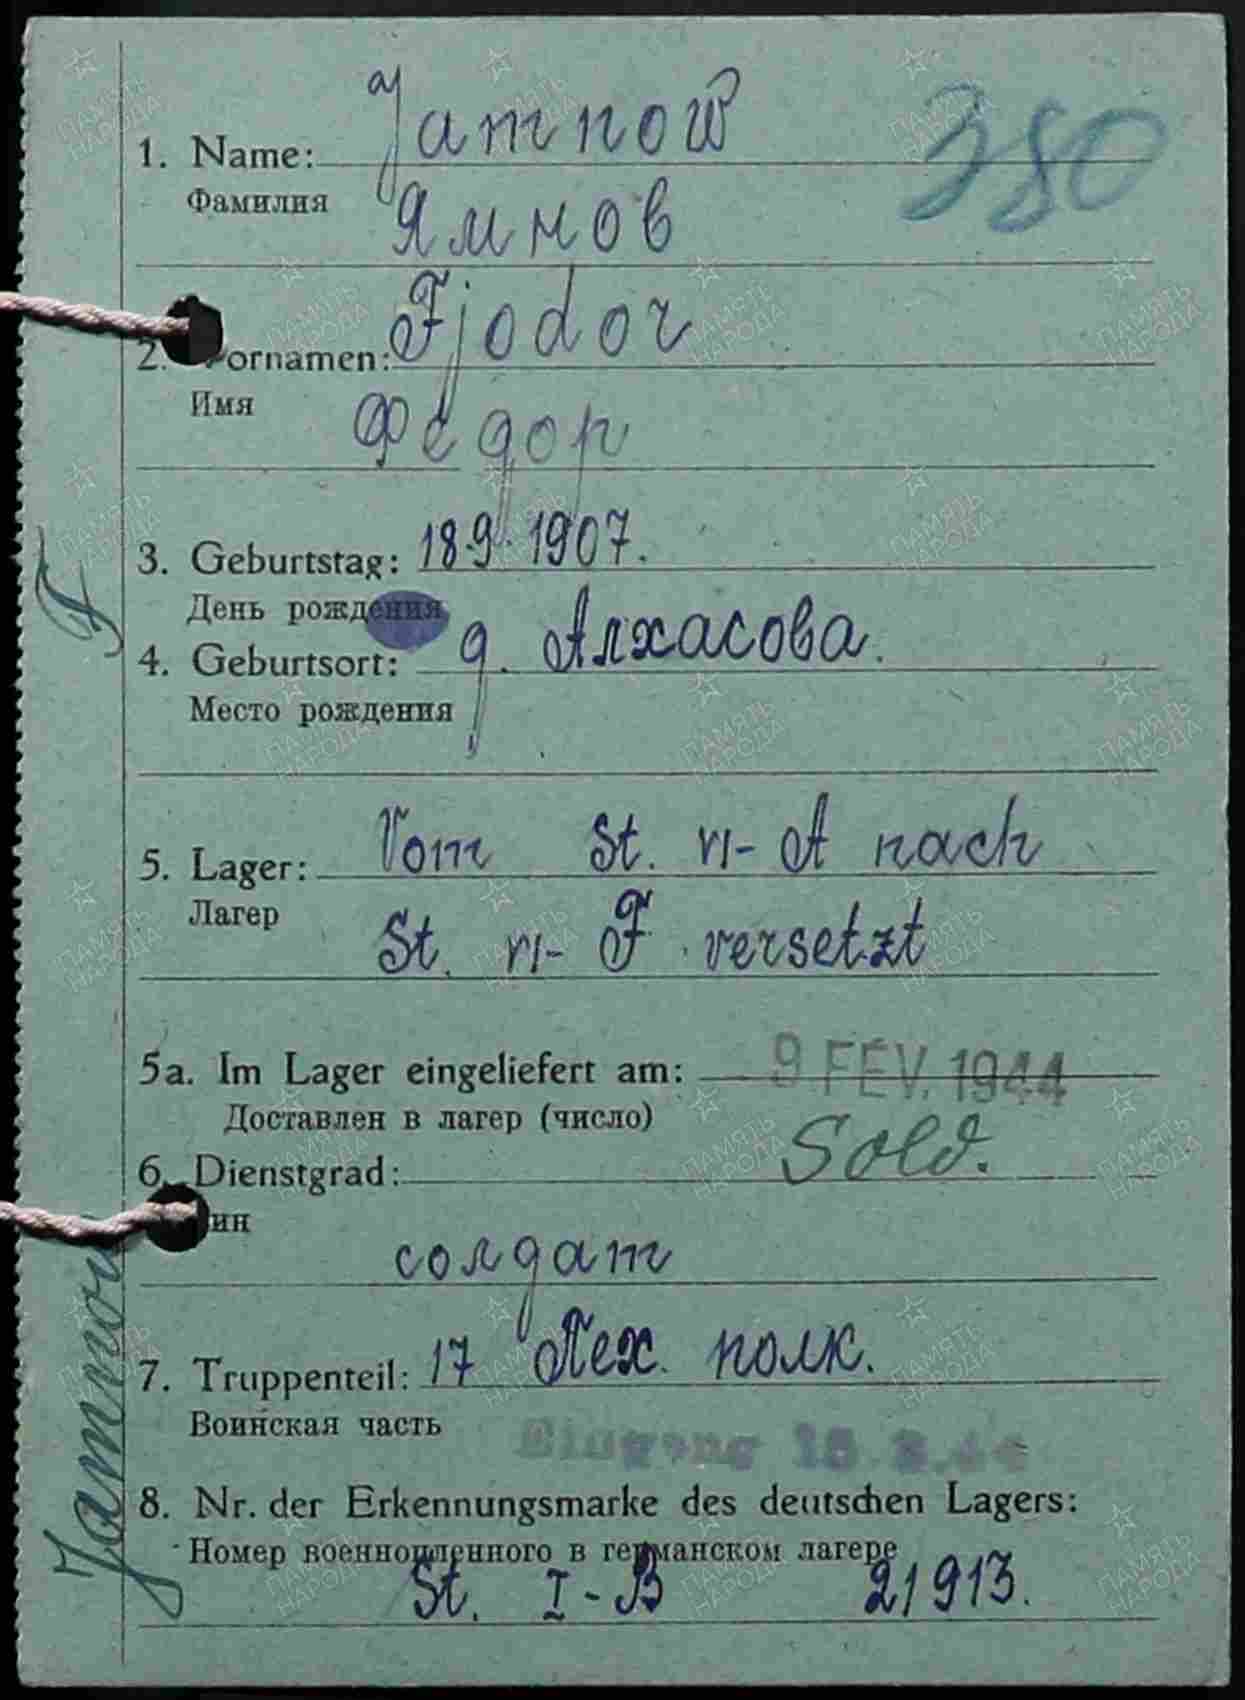 380
1. Name: Jamnow
Фамилия Ямнов
2. Vornamen: Fjodor
Имя Федор
3. Geburtstag: 18.9.1907.
День рождения
4. Geburtsort: д. Алхасова.
Место рождения
5. Lager: Vom St. VI-A nach
Лагер St. VI-F versetzt
5a. Im Lager eingeliefert am: 9 FEV. 1944
Доставлен в лагер (число)
6. Dienstgrad: Sold.
Чин
солдат
7. Truppenteil: 17 Пех. полк.
Воинская часть
Eingang
8. Nr. der Erkennungsmarke des deutschen Lagers:
Номер военнопленного в германском лагере
St. I-B 21913.
F
Jamnow
ПАМЯТЬ НАРОДА